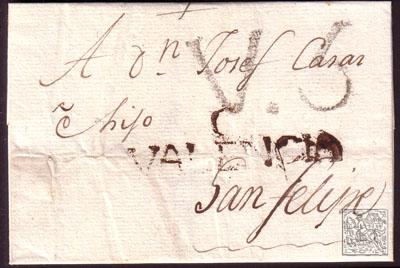 A Dn. Josef Casar
V.6
è hijo
VALENCIA
San felipe